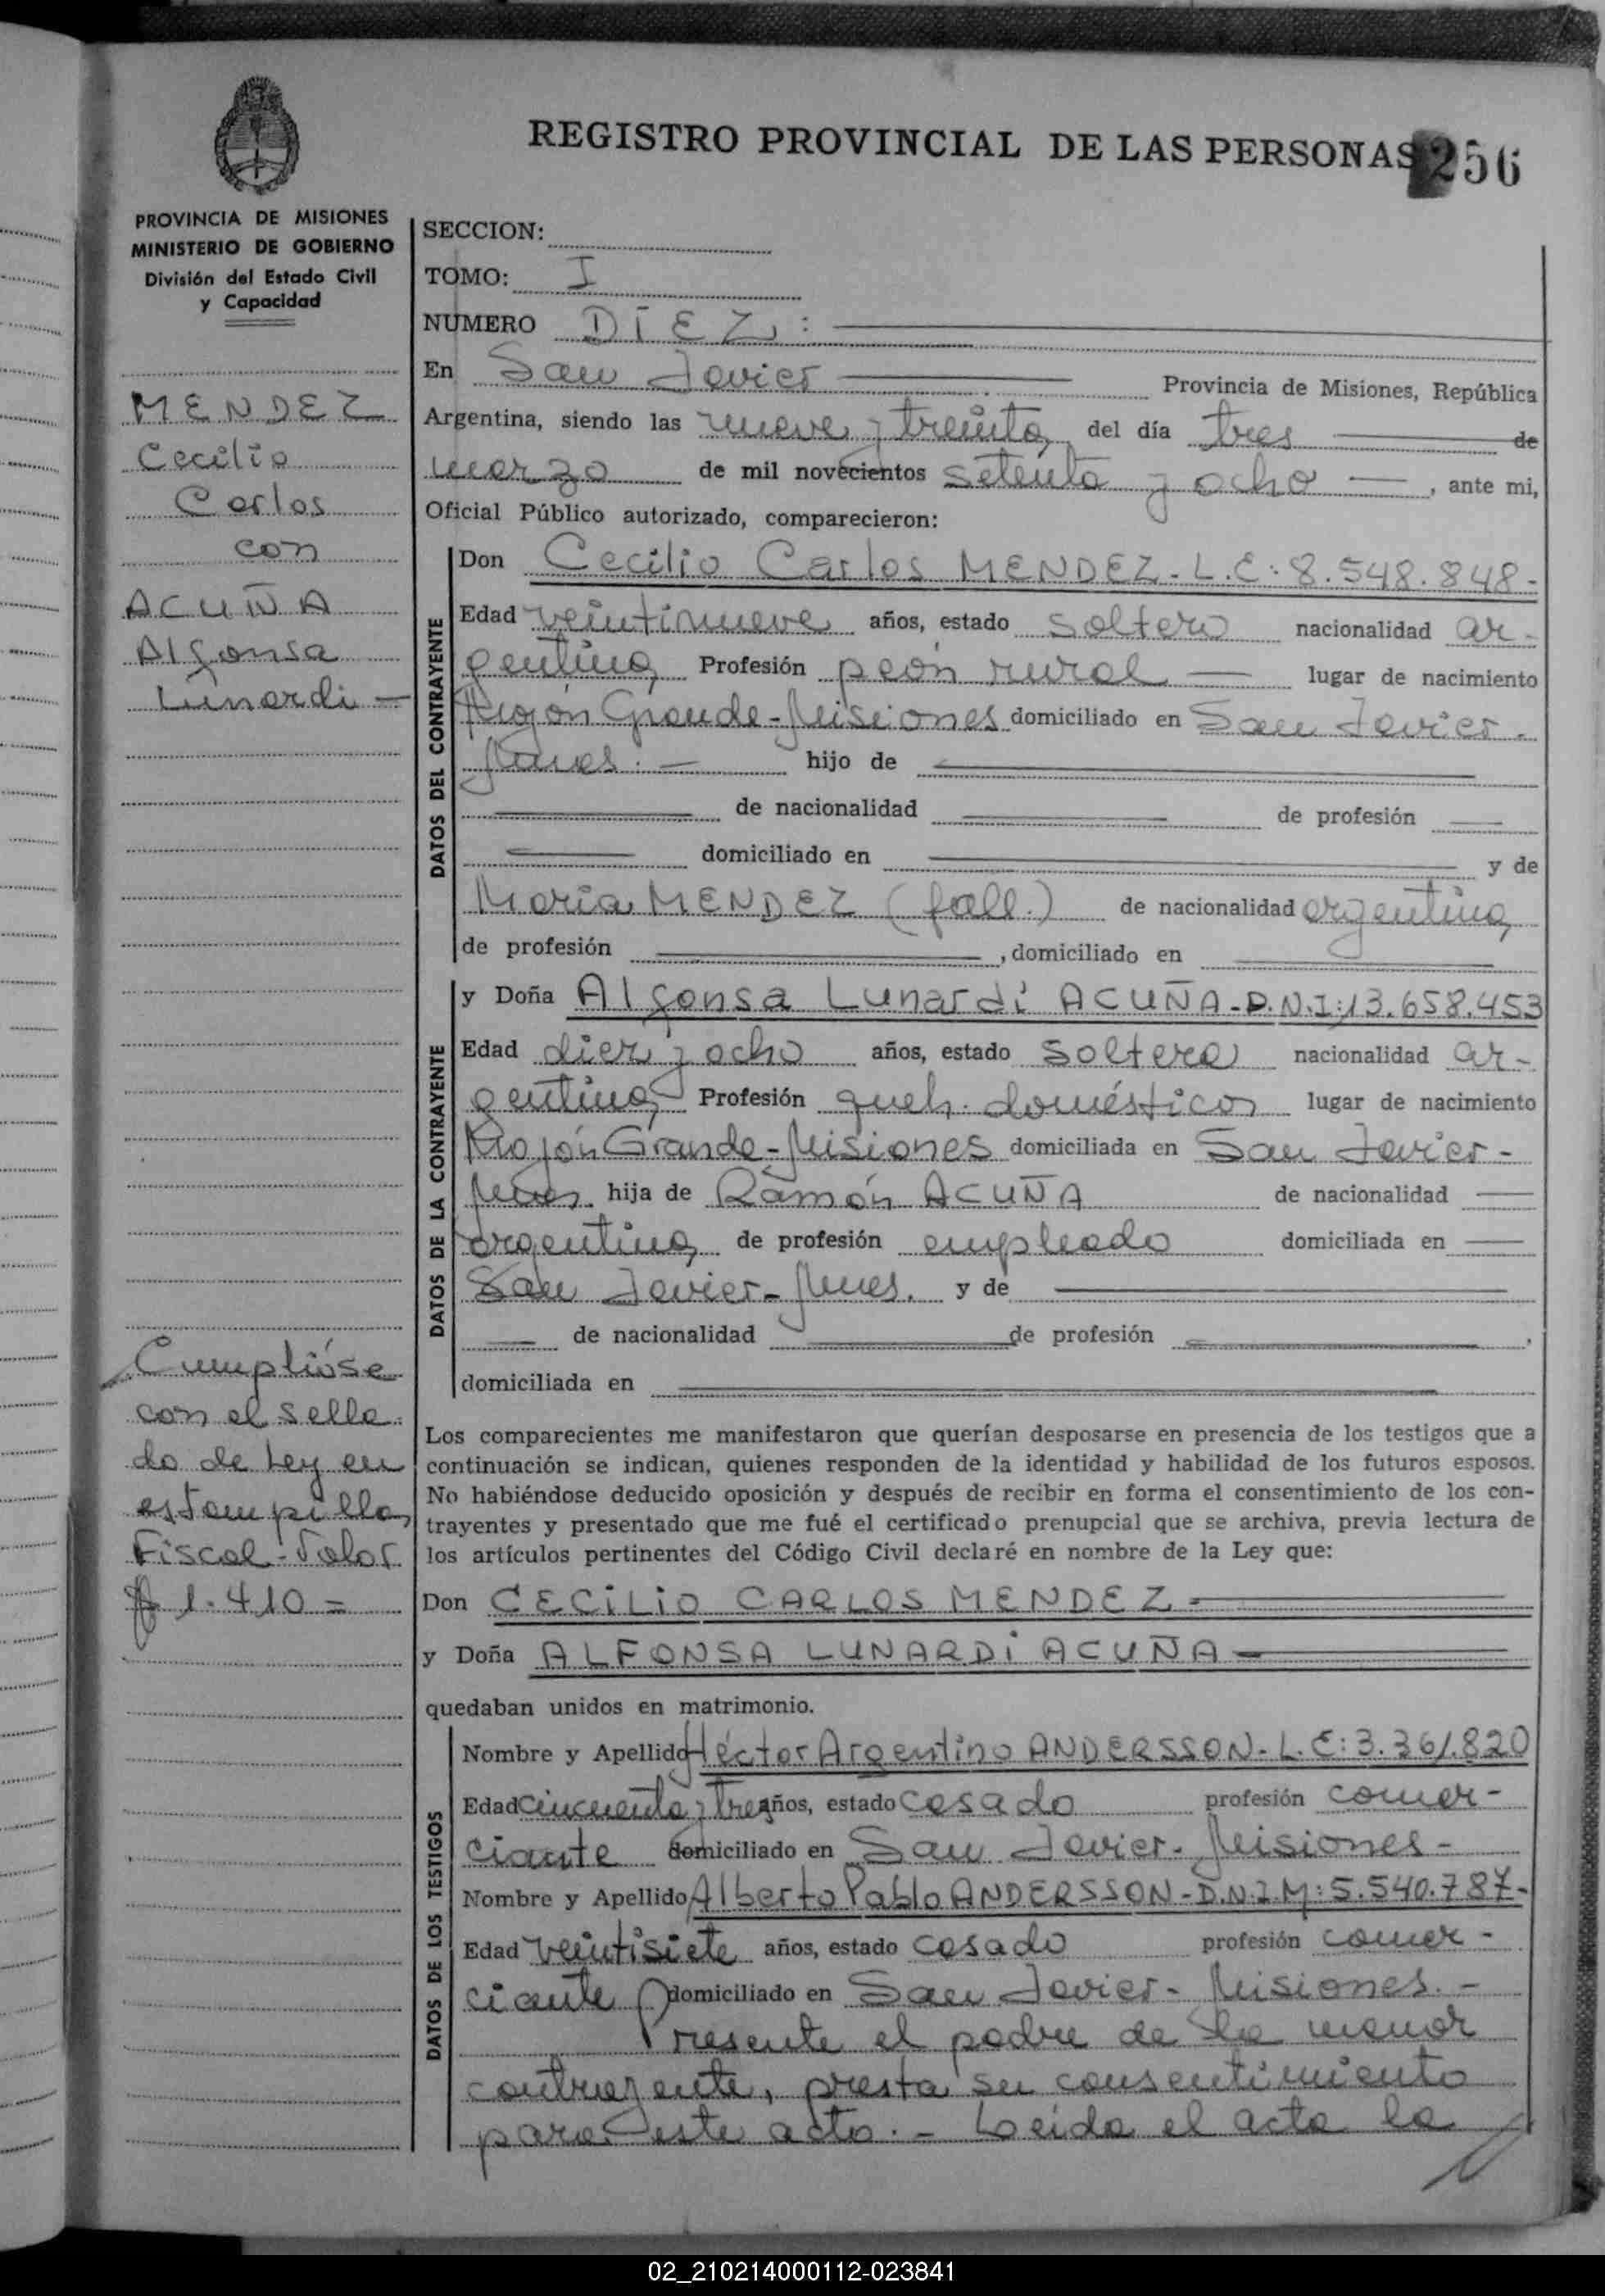 REGISTRO PROVINCIAL DE LAS PERSONAS 256
PROVINCIA DE MISIONES
MINISTERIO DE GOBIERNO
División del Estado Civil
y Capacidad
MENDEZ
Cecilio
Carlos
con
ACUÑA
Alfonsa
Lunardi -
Cumplióse
con el sella
do de Ley en
estampilla,
Fiscal-Valor
$ 1.410 =
SECCION:
TOMO: I
NUMERO DIEZ :
En San Javier Provincia de Misiones, República
Argentina, siendo las nueve y treinta, del día tres de
marzo de mil novecientos setenta y ocho , ante mi,
Oficial Público autorizado, comparecieron:
DATOS DEL CONTRAYENTE
Don Cecilio Carlos MENDEZ - L.E: 8.548.848 -
Edad veintinueve años, estado soltero nacionalidad ar-
gentina, Profesión peón rural lugar de nacimiento
Mojón Grande - Misiones domiciliado en San Javier -
Mnes. - hijo de
de nacionalidad de profesión
domiciliado en y de
María MENDEZ (fall.) de nacionalidad argentina,
de profesión , domiciliado en
DATOS DE LA CONTRAYENTE
y Doña Alfonsa Lunardi ACUÑA - D.N.I: 13.658.453
Edad diez y ocho años, estado soltera nacionalidad ar-
gentina, Profesión queh. domésticos lugar de nacimiento
Mojón Grande - Misiones domiciliada en San Javier -
Mnes. hija de Ramón ACUÑA de nacionalidad
argentina, de profesión empleado domiciliada en
San Javier - Mnes. y de
de nacionalidad de profesión ,
domiciliada en
Los comparecientes me manifestaron que querían desposarse en presencia de los testigos que a
continuación se indican, quienes responden de la identidad y habilidad de los futuros esposos.
No habiéndose deducido oposición y después de recibir en forma el consentimiento de los con-
trayentes y presentado que me fué el certificado prenupcial que se archiva, previa lectura de
los artículos pertinentes del Código Civil declaré en nombre de la Ley que:
Don CECILIO CARLOS MENDEZ -
y Doña ALFONSA LUNARDI ACUÑA -
quedaban unidos en matrimonio.
DATOS DE LOS TESTIGOS
Nombre y Apellido Héctor Argentino ANDERSSON - L.E: 3.361.820
Edad cincuenta y tres años, estado casado profesión comer-
ciante domiciliado en San Javier - Misiones -
Nombre y Apellido Alberto Pablo ANDERSSON - D.N.I.M: 5.540.787 -
Edad veintisiete años, estado casado profesión comer-
ciante domiciliado en San Javier - Misiones. -
Presente el padre de la menor
contrayente, presta su consentimiento
para este acto. - Leida el acta la
02_210214000112-023841